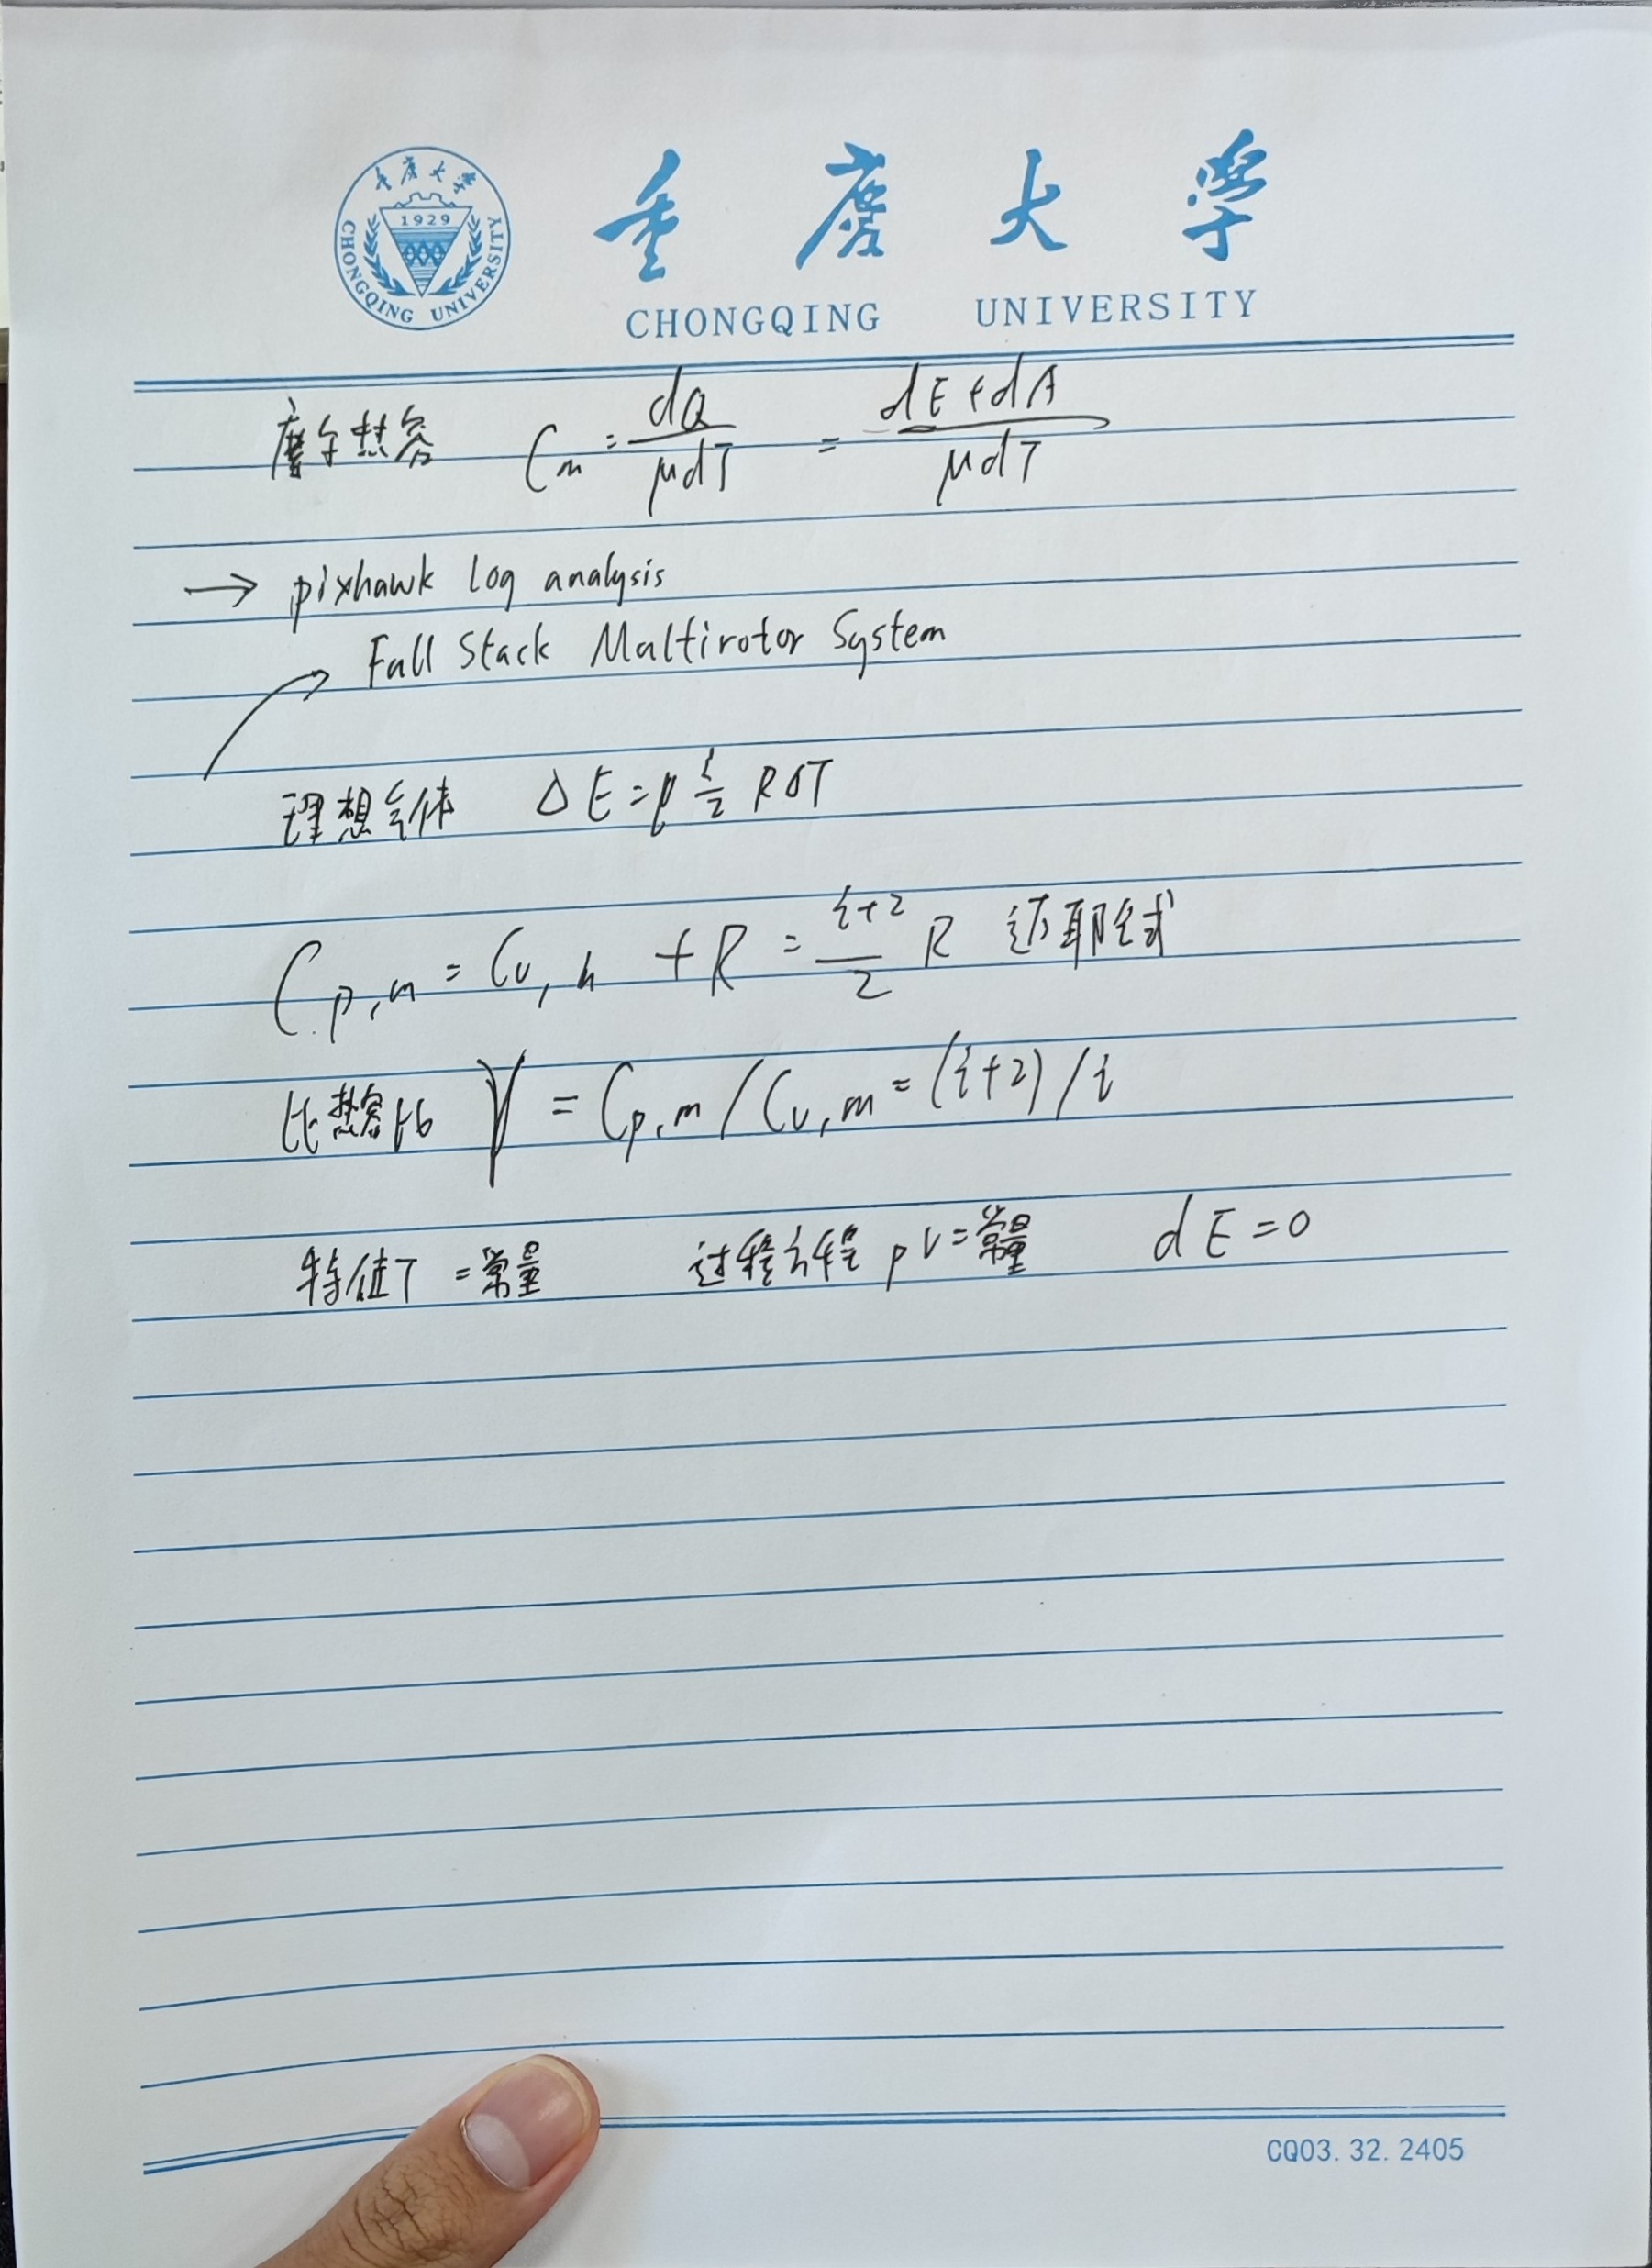 重庆大学
1929
CHONGQING UNIVERSITY
重庆大学
CHONGQING UNIVERSITY
摩尔热容 Cm = dQ/μdT = dE+dA/μdT
→ pixhawk log analysis
Full Stack Multirotor System
理想气体 ΔE=μ i/2 RΔT
Cp,m = Cv,m + R = i+2/2 R 迈耶公式
比热容比 γ = Cp,m/Cv,m = (i+2)/i
特征T=常量 过程方程 pV=常量 dE=0
CQ03.32.2405